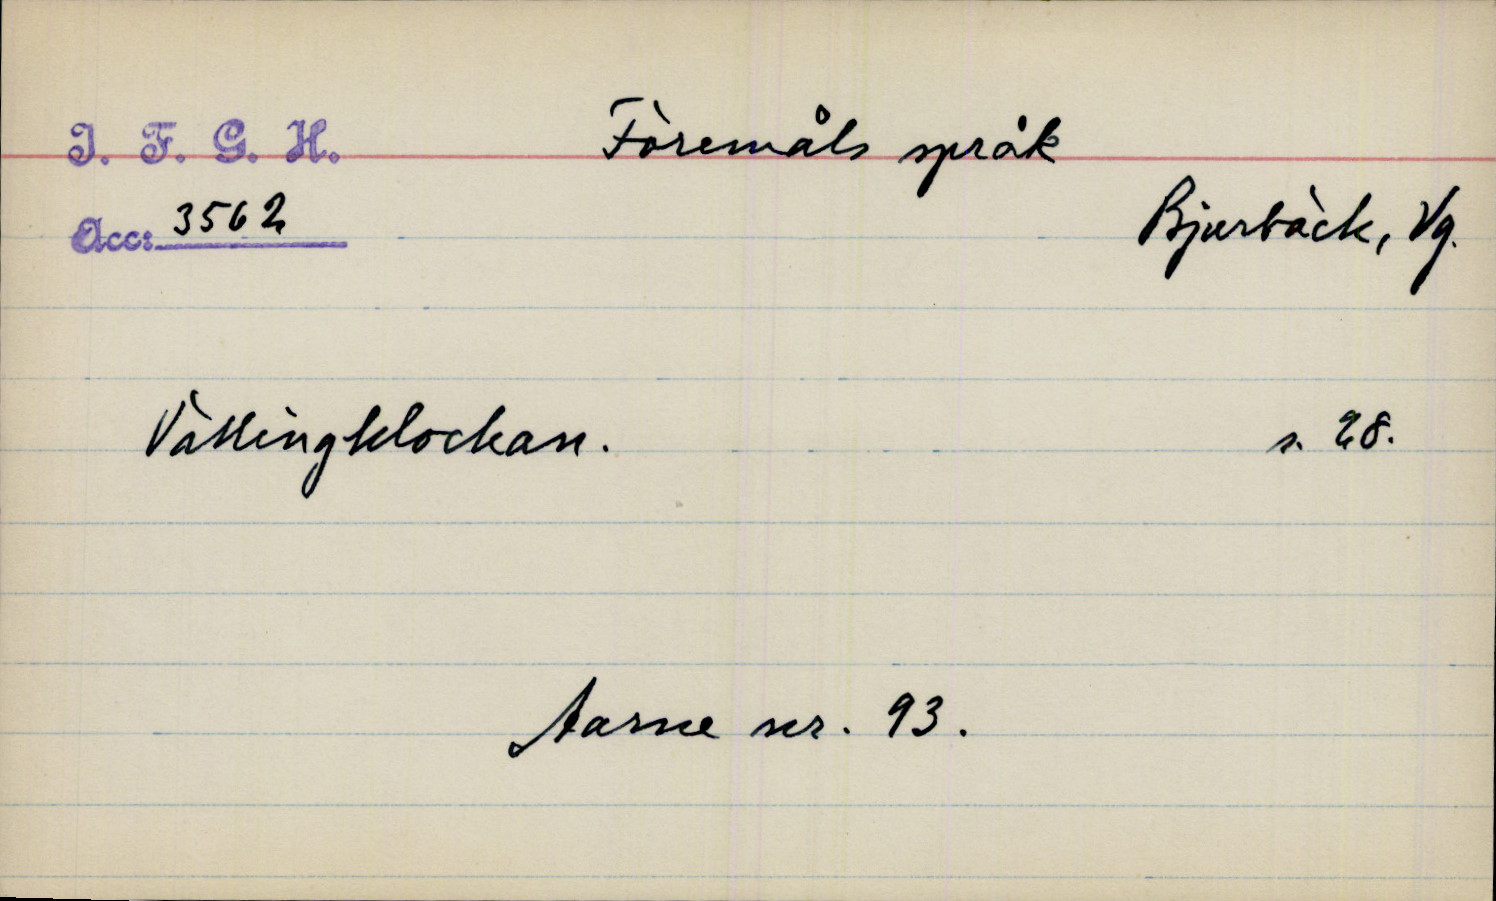 I. F. G. H.
Föremåls språk
Acc: 3562
Bjurbäck, Vg.
Vällingklockan.
s. 28.
Aarne nr. 93.